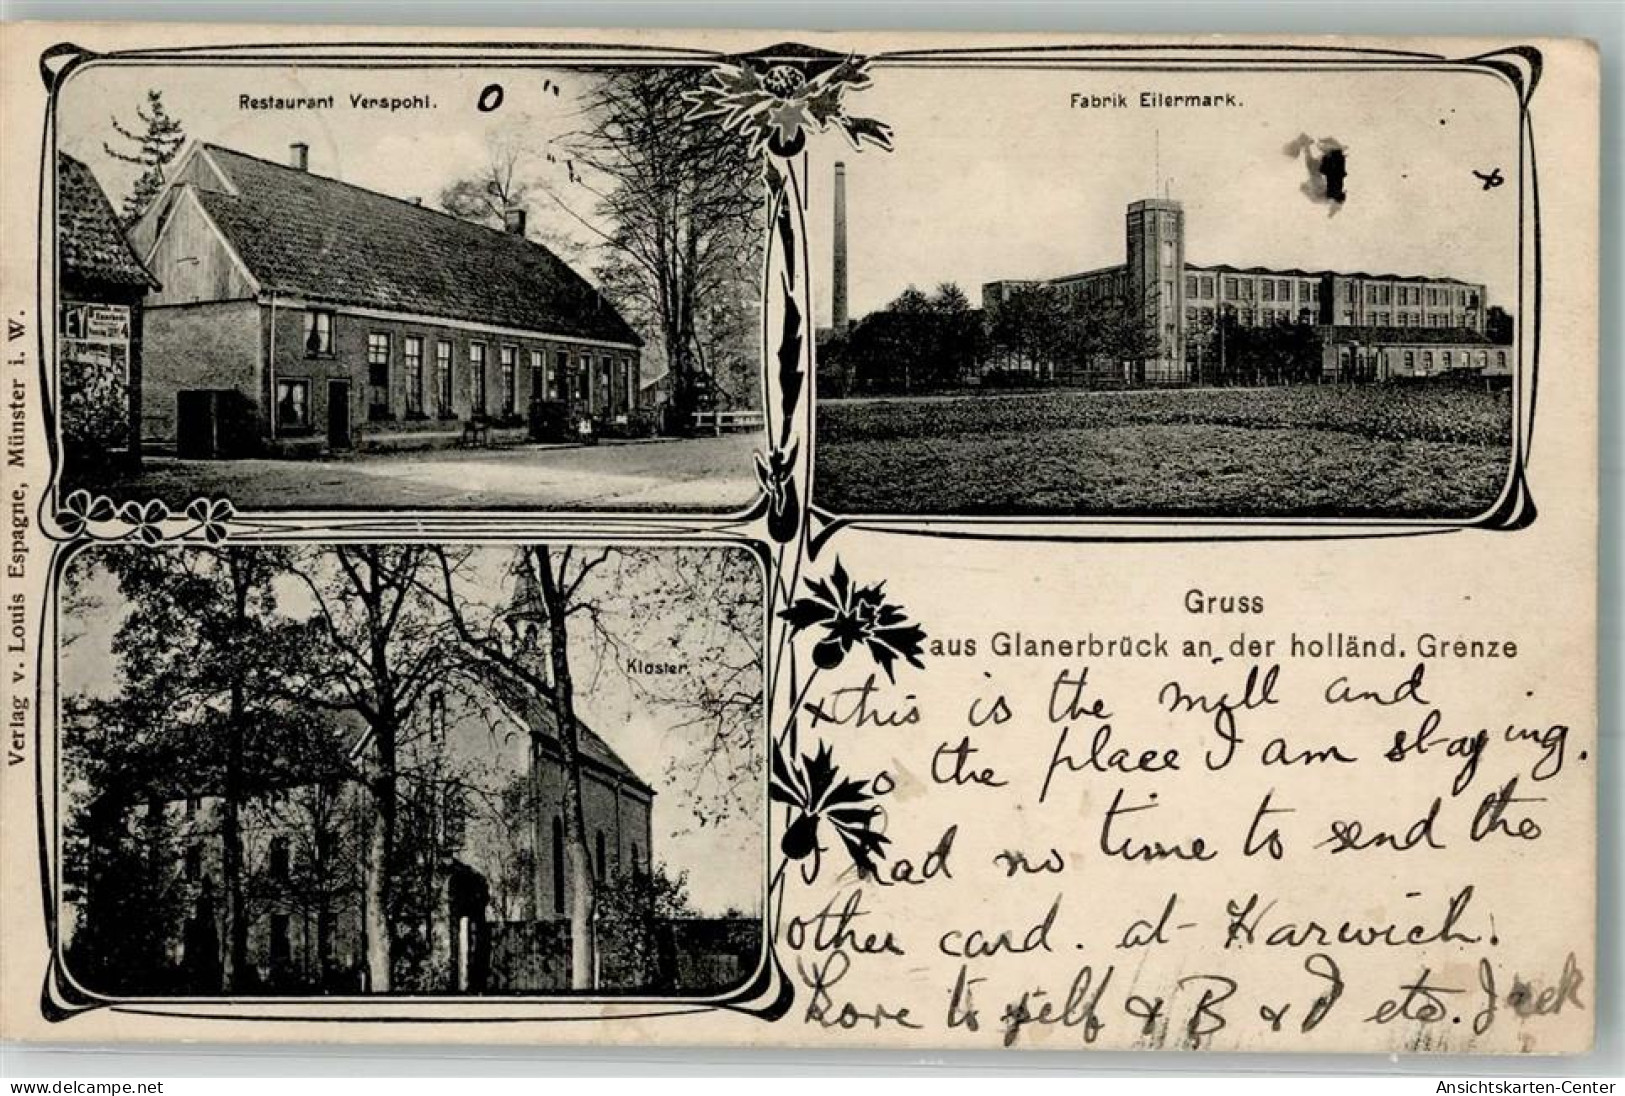 Restaurant Verspohl. O
Fabrik Eilermark.
x
Kloster
Verlag v. Louis Espagne, Münster i. W.
Gruss
aus Glanerbrück an der holländ. Grenze
x this is the mill and
o the place I am staying.
I had no time to send the
other card. at Harwich.
Love to self & B & J etc. Jack
delcampe.net
Ansichtskarten-Center